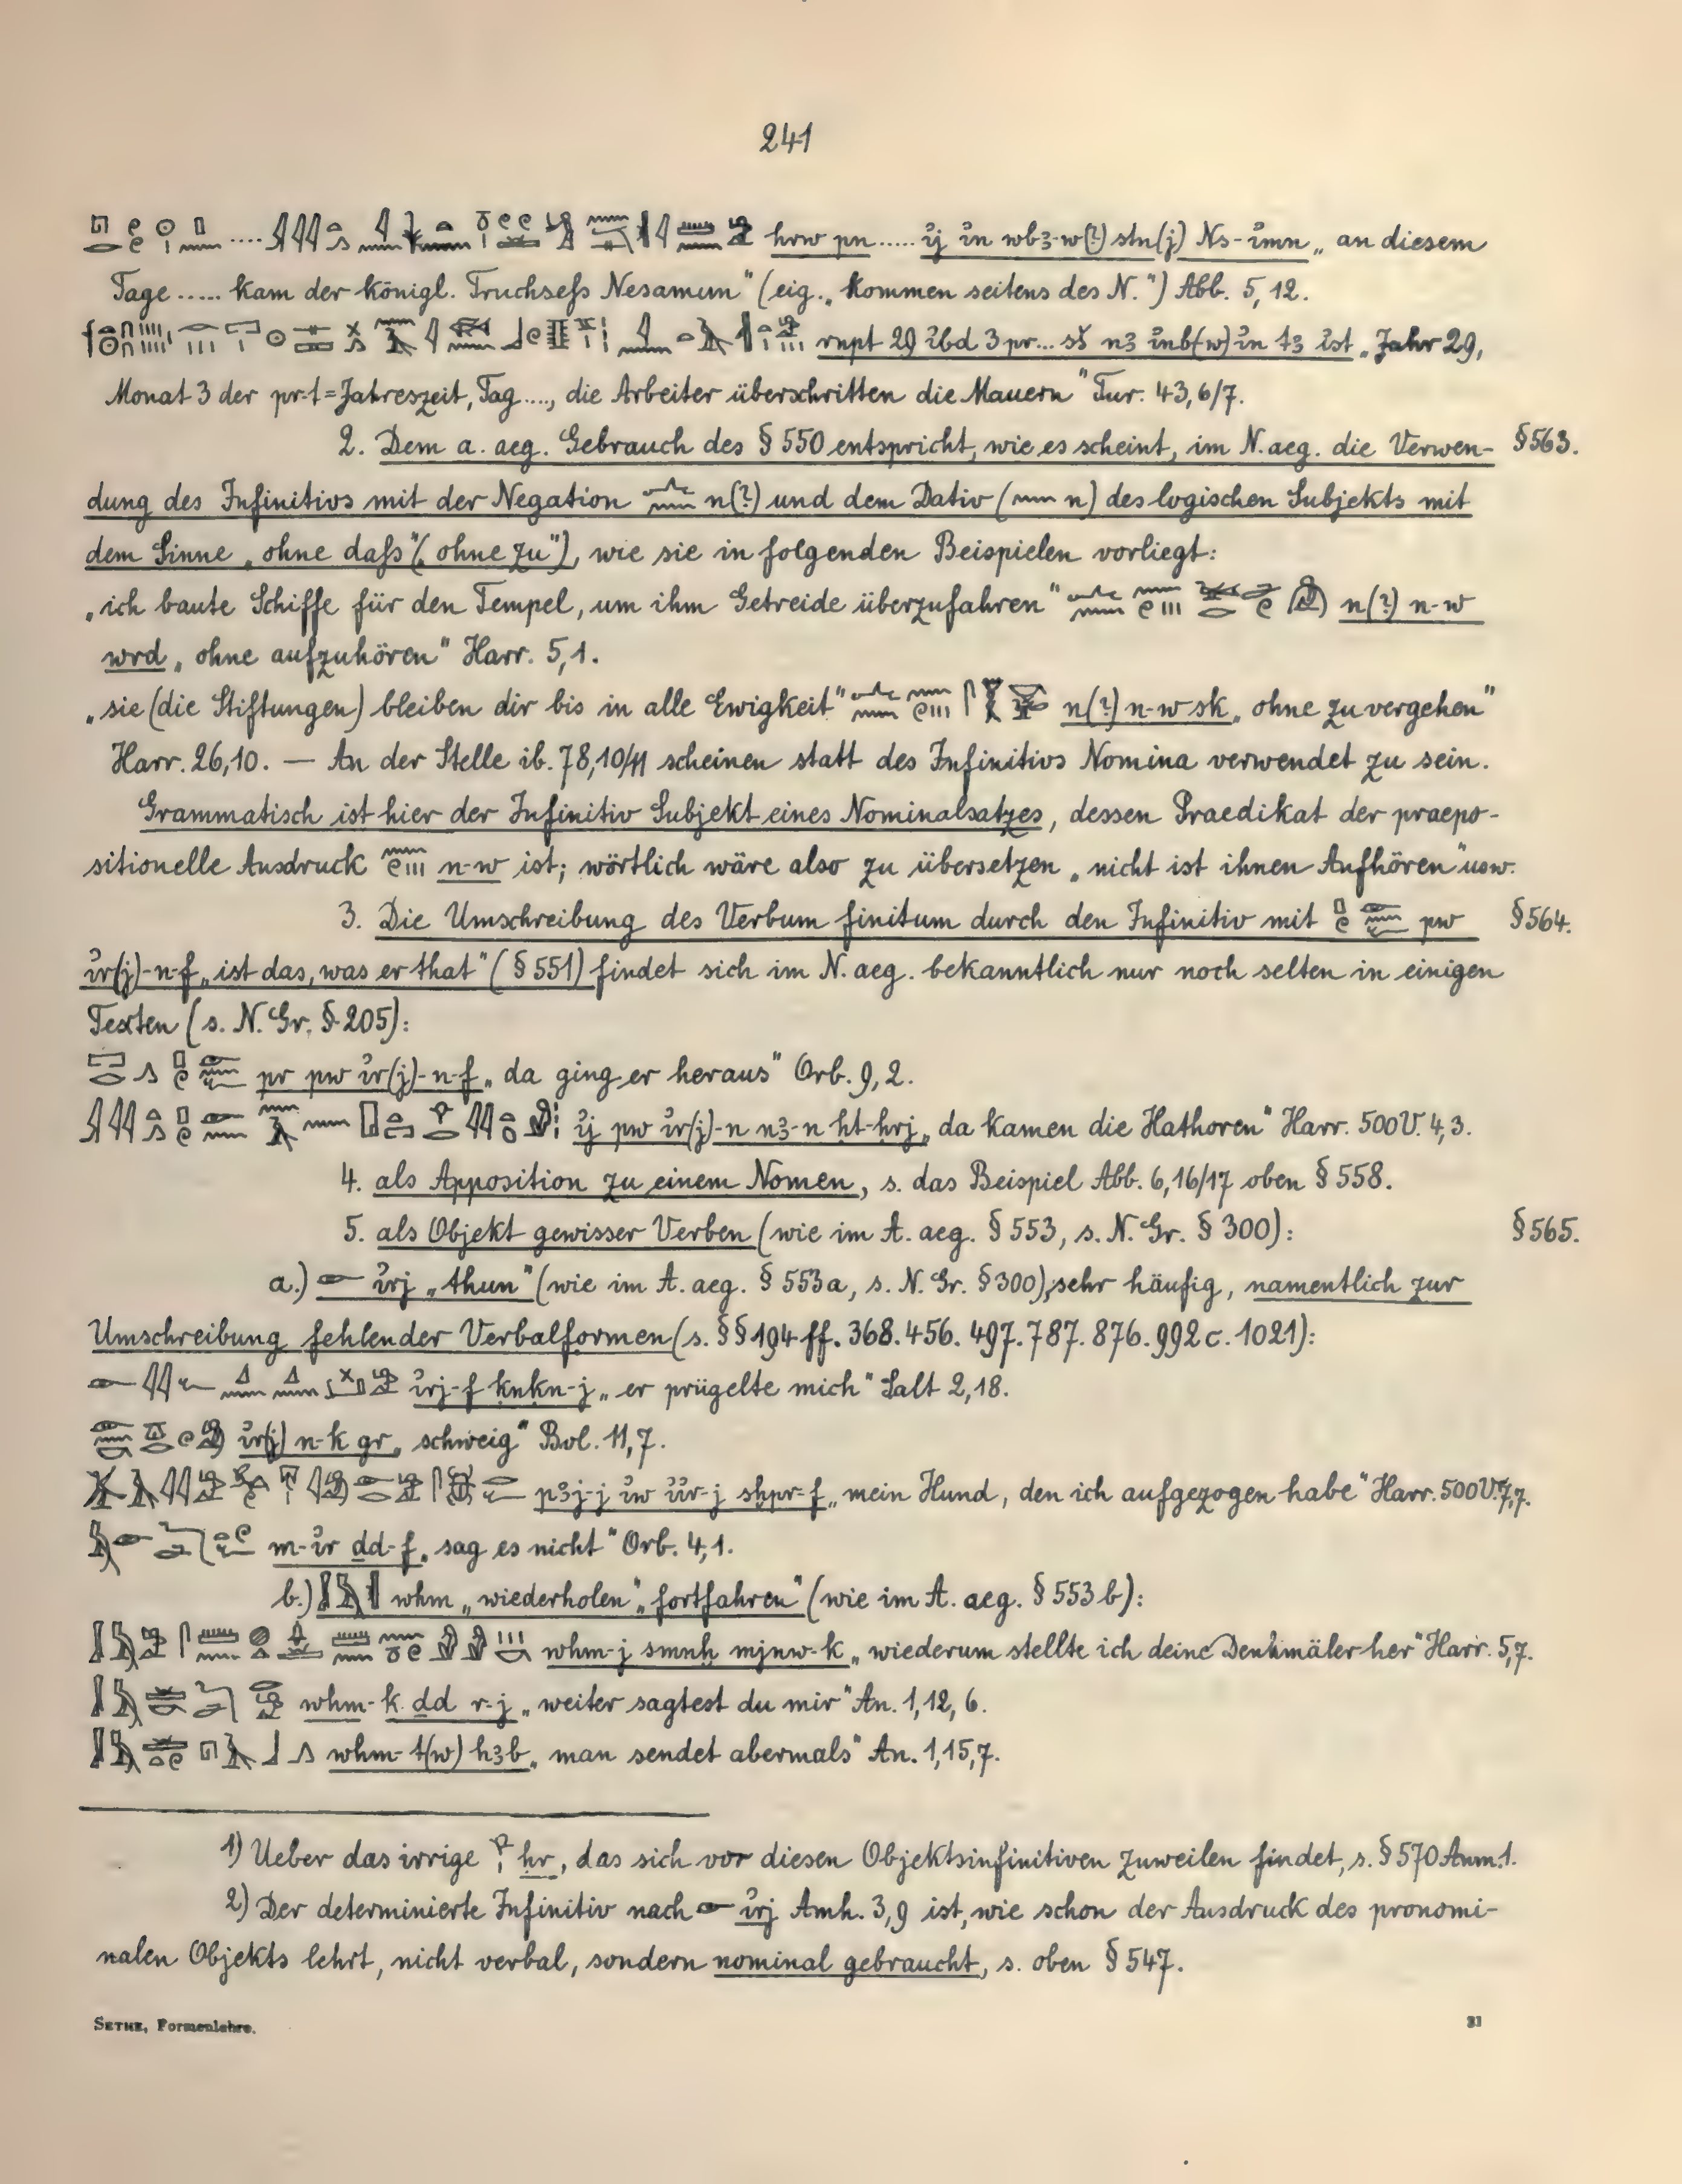 241
hrw pn ..... i҆j i҆n wbꜣ-w(?) stn(j) Ns-i҆mn „an diesem
Tage ..... kam der königl. Truchsefs Nesamun" (eig. „Kommen seitens des N.") Abb. 5,12.
rnpt 29 ꜣbd 3 pr... sš nꜣ i҆nb(w) i҆n tꜣ i҆st „Jahr 29,
Monat 3 der pr·t=Jahreszeit, Tag ...., die Arbeiter überschritten die Mauern" Tur. 43,6/7.
2. Dem a. aeg. Gebrauch des § 550 entspricht, wie es scheint, im N. aeg. die Verwen- § 563.
dung des Infinitivs mit der Negation n(?) und dem Dativ ( n) des logischen Subjekts mit
dem Sinne „ohne dafs" („ohne zu"), wie sie in folgenden Beispielen vorliegt:
„ich baute Schiffe für den Tempel, um ihm Getreide überzufahren" n(?) n-w
wrd „ohne aufzuhören" Harr. 5,1.
„sie (die Stiftungen) bleiben dir bis in alle Ewigkeit" n(?) n-w sk „ohne zu vergehen"
Harr. 26,10. — An der Stelle ib. 78,10/11 scheinen statt des Infinitivs Nomina verwendet zu sein.
Grammatisch ist hier der Infinitiv Subjekt eines Nominalsatzes, dessen Praedikat der praepo-
sitionelle Ausdruck n-w ist; wörtlich wäre also zu übersetzen „nicht ist ihnen Aufhören" usw.
3. Die Umschreibung des Verbum finitum durch den Infinitiv mit pw § 564.
i҆r(j)-n-f „ist das, was er that" (§ 551) findet sich im N. aeg. bekanntlich nur noch selten in einigen
Texten (s. N. Gr. § 205):
pr pw i҆r(j)-n-f „da ging er heraus" Orb. 9,2.
i҆j pw i҆r(j)-n nꜣ-n ḥt-ḥrj „da kamen die Hathoren" Harr. 500 V. 4,3.
4. als Apposition zu einem Nomen, s. das Beispiel Abb. 6,16/17 oben § 558.
5. als Objekt gewisser Verben (wie im A. aeg. § 553, s. N. Gr. § 300): § 565.
a.) i҆rj „thun" (wie im A. aeg. § 553a, s. N. Gr. § 300), sehr häufig, namentlich zur
Umschreibung fehlender Verbalformen (s. §§ 194 ff. 368. 456. 497. 787. 876. 992 c. 1021):
i҆rj-f ḳnḳn-j „er prügelte mich" Salt 2,18.
i҆r(j) n-k gr „schweig" Bol. 11,7.
pꜣj-j i҆w i҆i҆r-j sḫpr-f „mein Hund, den ich aufgezogen habe" Harr. 500 V. 7,7.
m-i҆r ḏd-f „sag es nicht" Orb. 4,1.
b.) wḥm „wiederholen" „fortfahren" (wie im A. aeg. § 553 b):
wḥm-j smnḫ mjnw-k „wiederum stellte ich deine Denkmäler her" Harr. 5,7.
wḥm-k ḏd r-j „weiter sagtest du mir" An. 1,12,6.
wḥm-t(w) hꜣb „man sendet abermals" An. 1,15,7.
1) Ueber das irrige ḥr, das sich vor diesen Objektsinfinitiven zuweilen findet, s. § 570 Anm. 1.
2) Der determinierte Infinitiv nach i҆rj Amh. 3,9 ist, wie schon der Ausdruck des pronomi-
nalen Objekts lehrt, nicht verbal, sondern nominal gebraucht, s. oben § 547.
SETHE, Formenlehre. 31